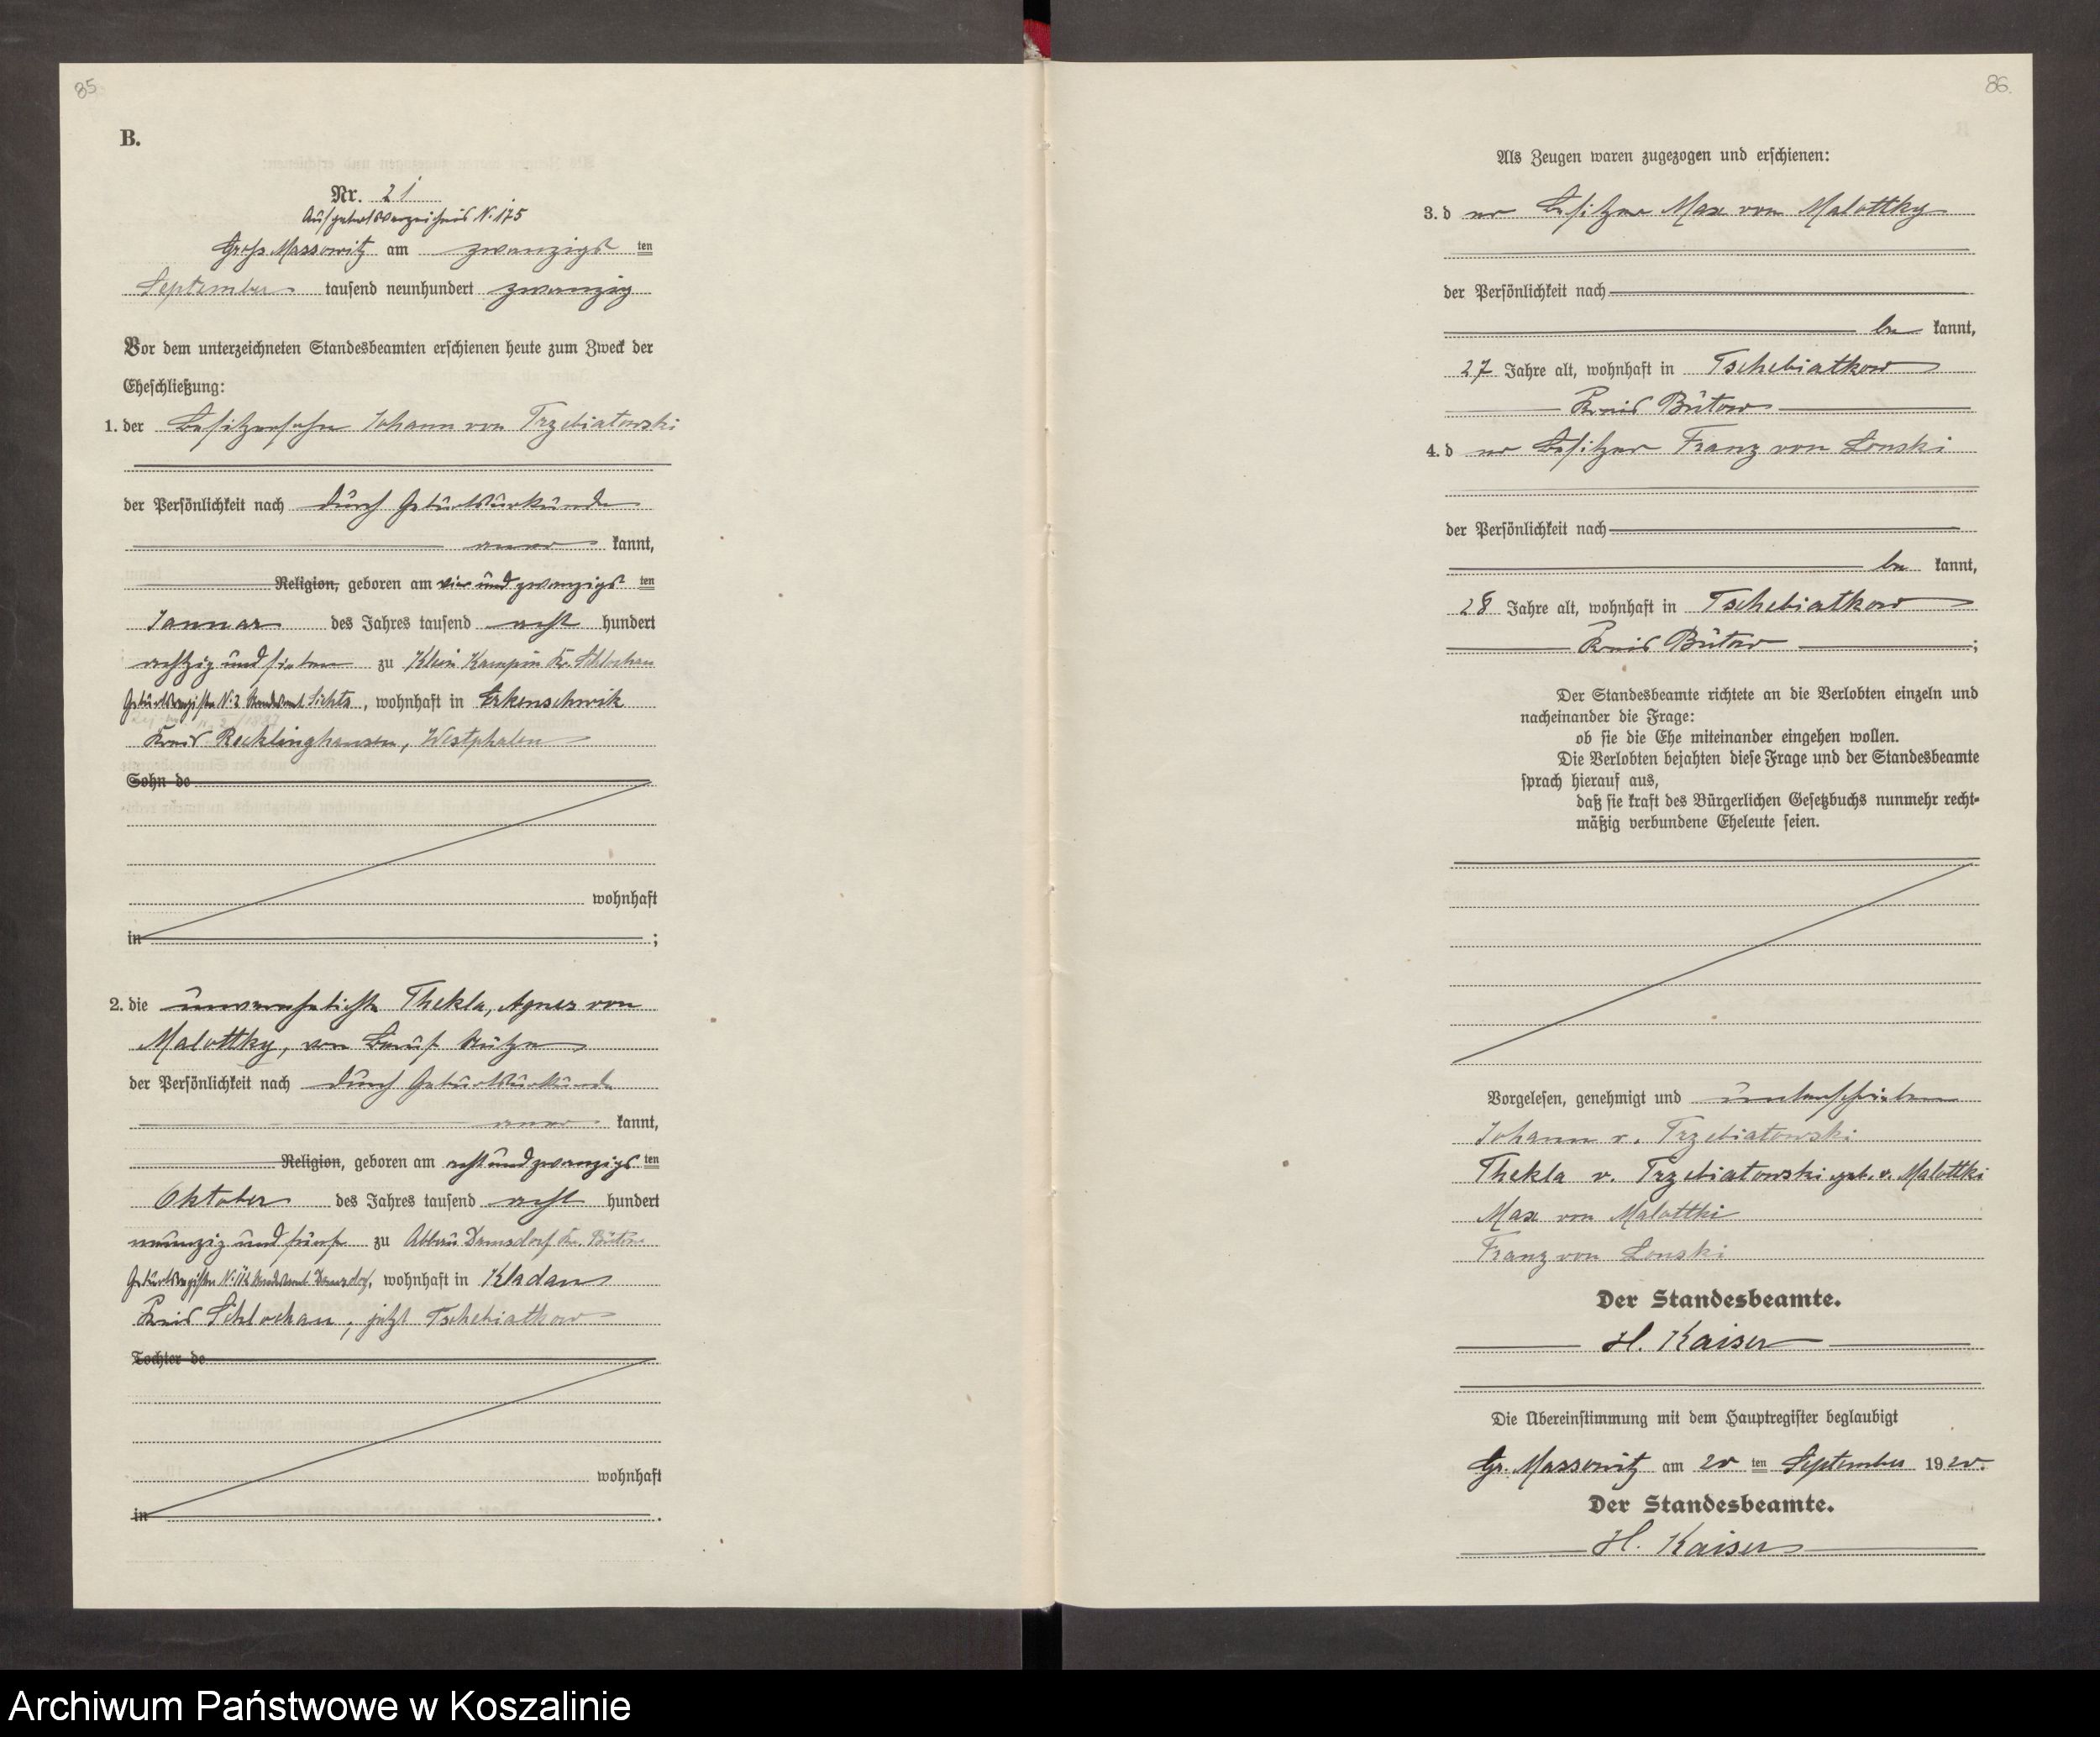 85
B.
Nr. 21
Aufgebotsverzeichnis N. 175
Groß Massowitz am zwanzigsten
September tausend neunhundert zwanzig
Vor dem unterzeichneten Standesbeamten erschienen heute zum Zweck der
Eheschließung:
1. der Besitzersohn Johann von Trzebiatowski
der Persönlichkeit nach durch Geburtsurkunde
aner kannt,
Religion, geboren am vier und zwanzigsten
Januar des Jahres tausend acht hundert
achtzig und sieben zu Klein Kampin Kr. Schlochau
Geburtsregister N. 2 Standesamt, wohnhaft in Erkenschwik
Kreis Recklinghausen, Westphalen
Sohn de
wohnhaft
in ;
2. die unverehelichte Thekla, Agnes von
Malottky, von Beruf
der Persönlichkeit nach durch Geburtsurkunde
aner kannt,
Religion, geboren am acht und zwanzigsten
Oktober des Jahres tausend acht hundert
neunzig und fünf zu Abbau Damsdorf Kr. Bütow
Geburtsregister Standesamt Damsdorf, wohnhaft in Kladau
Kreis Schlochau, jetzt Tschebiatkow
Tochter de
wohnhaft
in .
86.
Als Zeugen waren zugezogen und erschienen:
3. der Besitzer Max von Malottky
der Persönlichkeit nach
be kannt,
27 Jahre alt, wohnhaft in Tschebiatkow
Kreis Bütow
4. der Besitzer Franz von Lonski
der Persönlichkeit nach
be kannt,
28 Jahre alt, wohnhaft in Tschebiatkow
Kreis Bütow ;
Der Standesbeamte richtete an die Verlobten einzeln und
nacheinander die Frage:
ob sie die Ehe miteinander eingehen wollen.
Die Verlobten bejahten diese Frage und der Standesbeamte
sprach hierauf aus,
daß sie kraft des Bürgerlichen Gesetzbuchs nunmehr recht-
mäßig verbundene Eheleute seien.
Vorgelesen, genehmigt und unterschrieben
Johann v. Trzebiatowski
Thekla v. Trzebiatowski geb. v. Malottki
Max von Malottki
Franz von Lonski
Der Standesbeamte.
H. Kaiser
Die Übereinstimmung mit dem Hauptregister beglaubigt
Gr. Massowitz am 20 ten September 1920.
Der Standesbeamte.
H. Kaiser
Archiwum Państwowe w Koszalinie